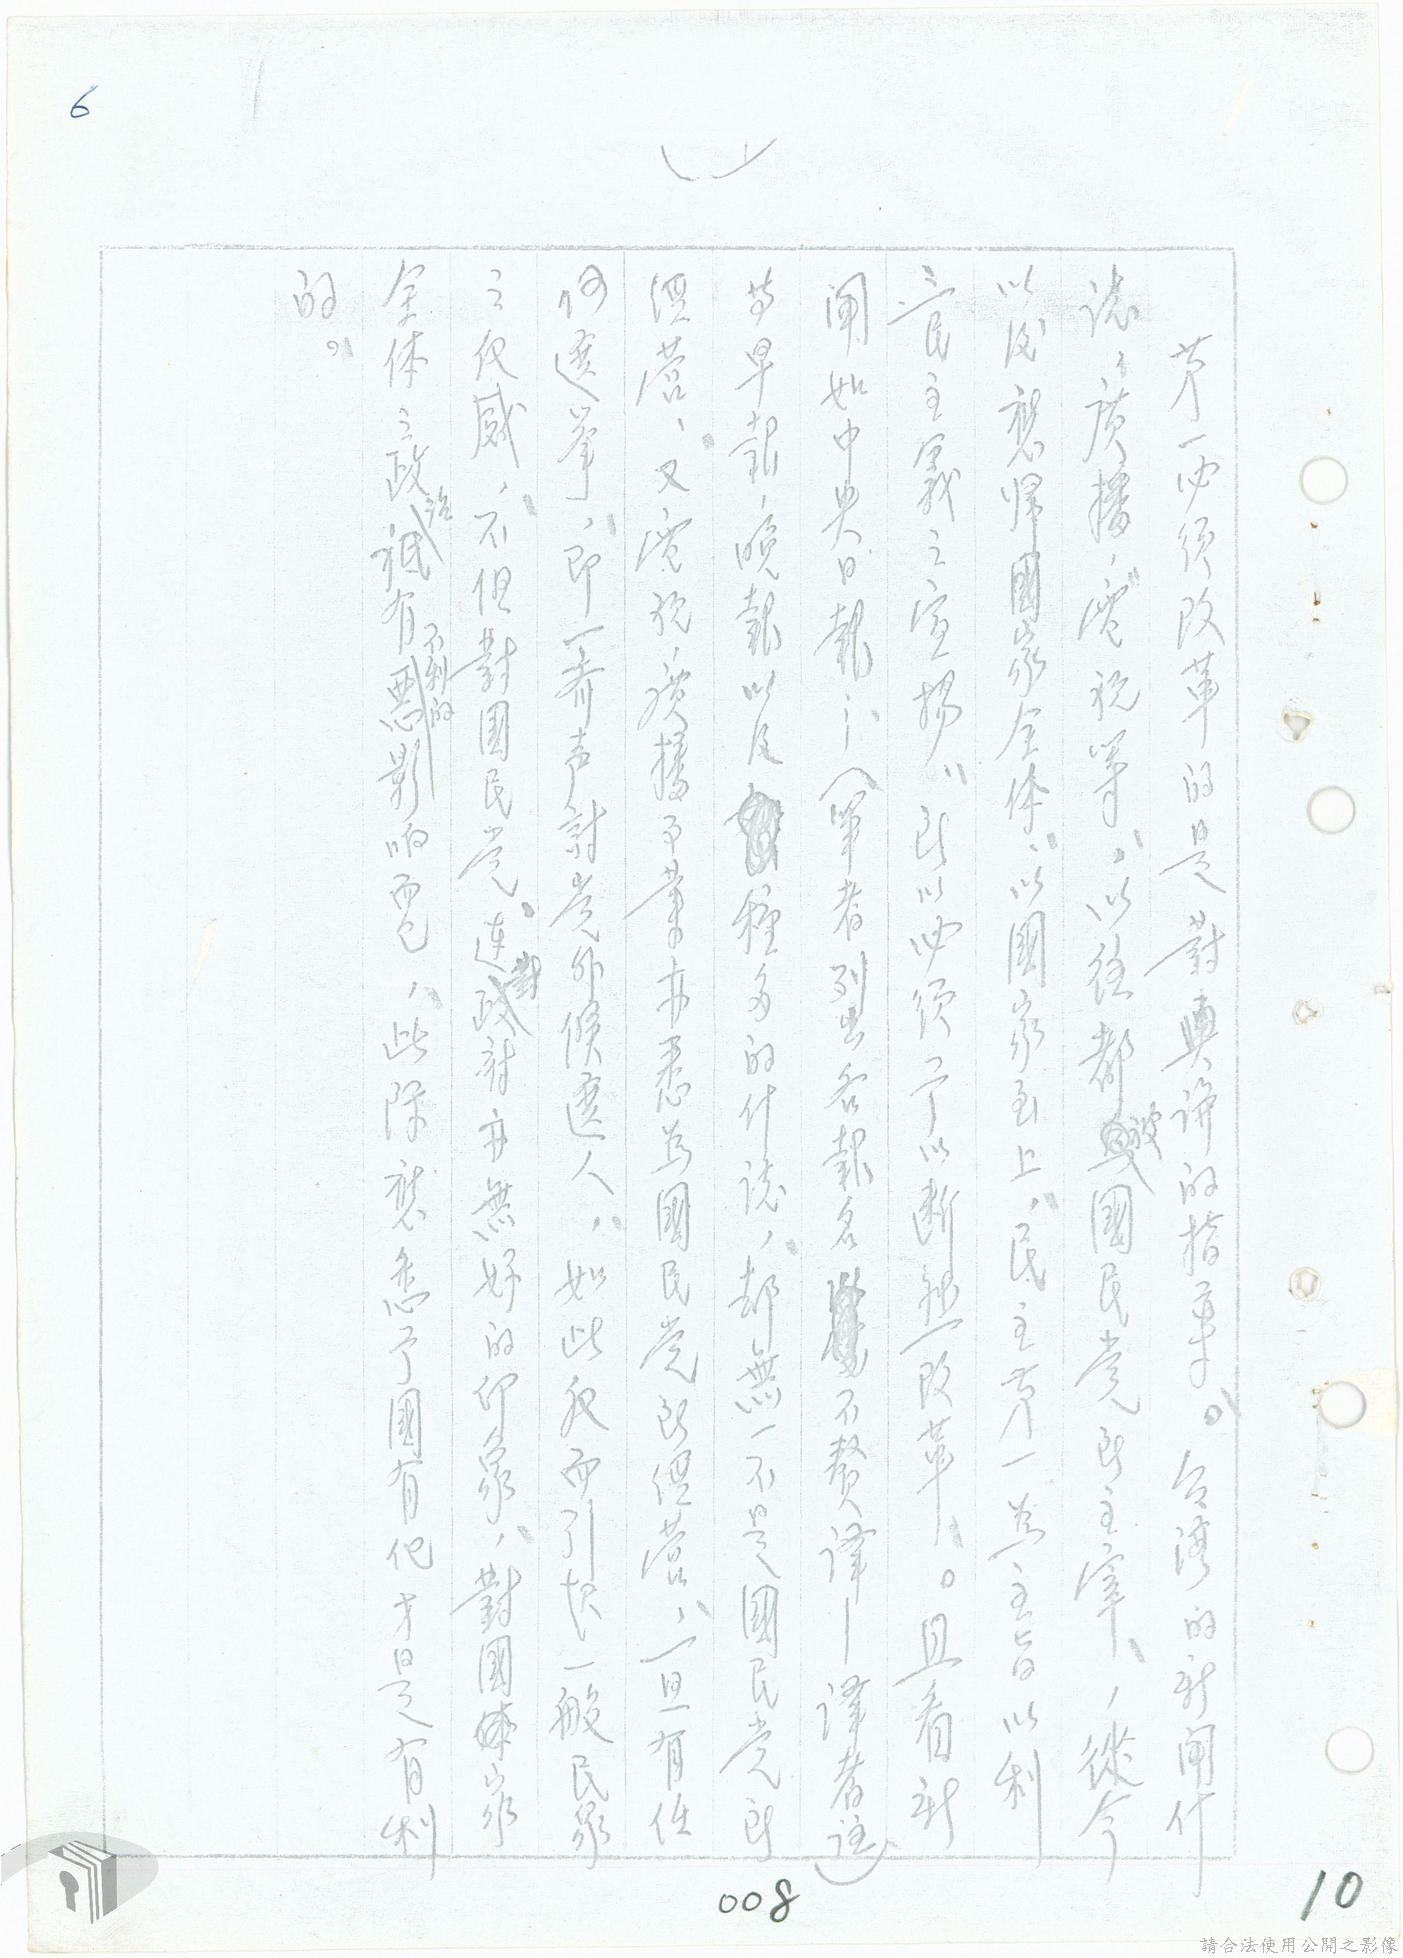 6
第一必須改革的是對輿論的指導。台湾的新聞什
誌，廣播，電視等，以往都被國民党所主宰，從今
以後應归國家全体，以國家至上，民主第一為主旨以利
三民主義之宣揚，所以必須予以断然改革。且看新
聞如中央日報……（筆者列出各報名不贅譯—譯者註）
等早報，晚報以及種多的什誌，都無一不是國民党所
經营，又電視，廣播事業亦悉為國民党所經营，一旦有任
何选举，即一齐声討党外候选人，如此而引起一般民眾
之反感，不但對國民党。連對政府亦無好的印象，對國家
全体之政治祗有不利的影响而已，此際應悉予國有化才是有利
的。
008
10
請合法使用公開之影像